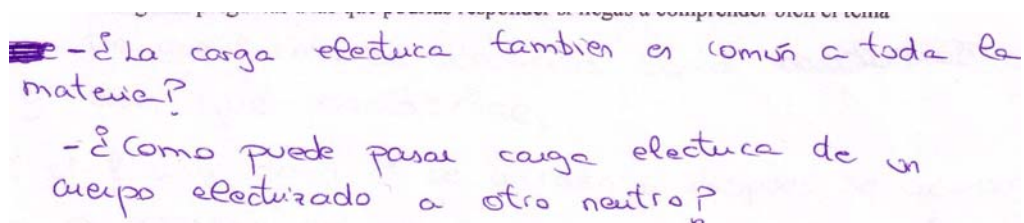 - ¿La carga electrica tambien es común a toda la
materia?
- ¿Como puede pasar carga electrica de un
cuerpo electrizado a otro neutro?